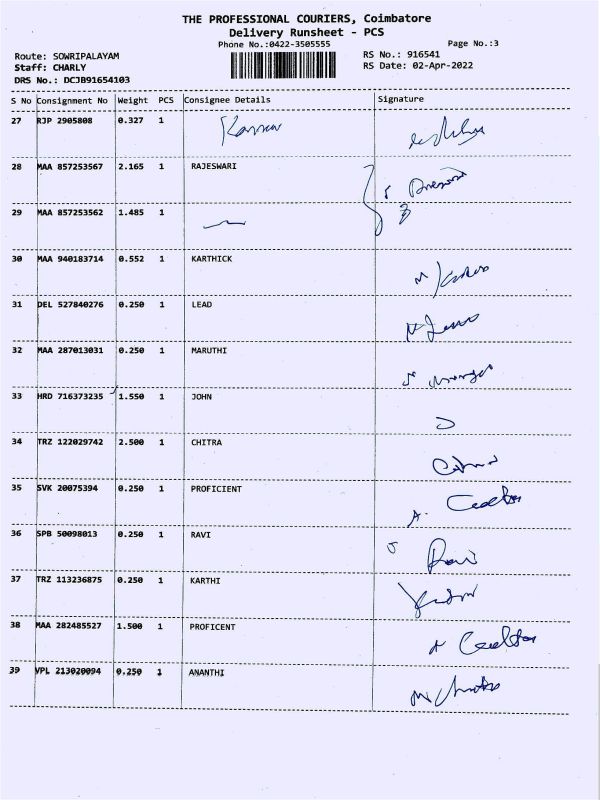 THE PROFESSIONAL COURIERS, Coimbatore
Delivery Runsheet - PCS
Phone No.:0422-3505555
Page No.:3
Route: SOWRIPALAYAM
RS No.: 916541
Staff: CHARLY
RS Date: 02-Apr-2022
DRS No.: DCJB91654103
S No Consignment No Weight PCS Consignee Details Signature
27 RJP 2905808 0.327 1
28 MAA 857253567 2.165 1 RAJESWARI
29 MAA 857253562 1.485 1
30 MAA 940183714 0.552 1 KARTHICK
31 DEL 527840276 0.250 1 LEAD
32 MAA 287013031 0.250 1 MARUTHI
33 HRD 716373235 1.550 1 JOHN
34 TRZ 122029742 2.500 1 CHITRA
35 SVK 20075394 0.250 1 PROFICIENT
36 SPB 50098013 0.250 1 RAVI Ravi
37 TRZ 113236875 0.250 1 KARTHI
38 MAA 282485527 1.500 1 PROFICENT
39 VPL 213020094 0.250 1 ANANTHI